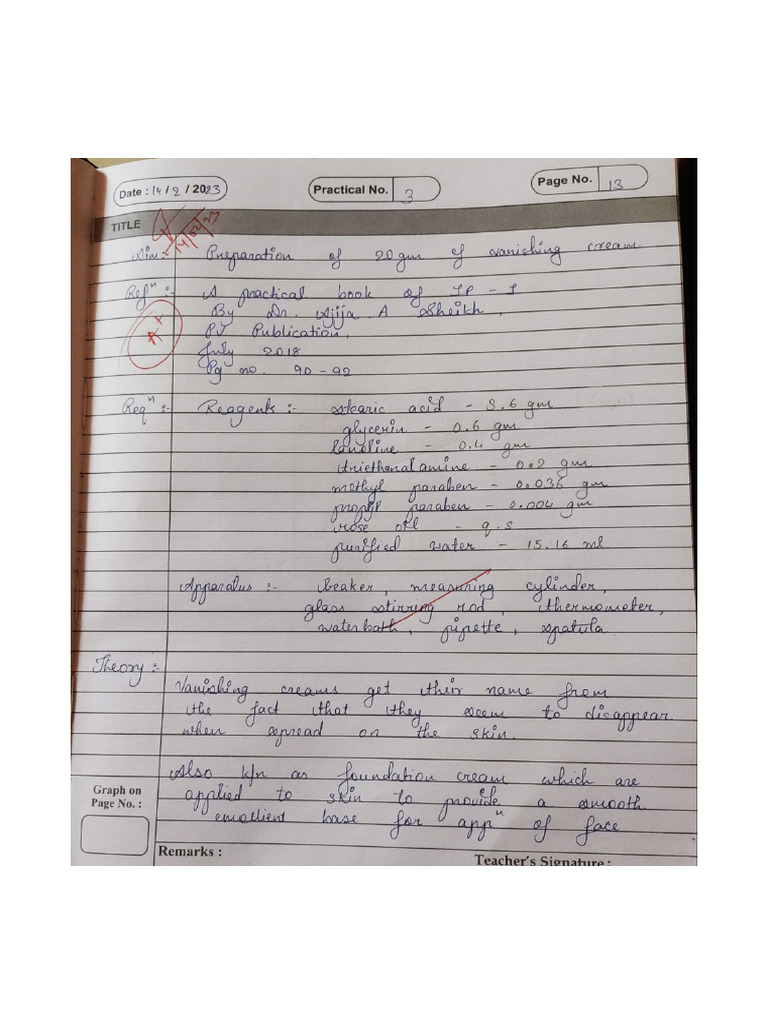 Date : 14 / 2 / 2023
Practical No. 3
Page No. 13
TITLE
14/02/23
Aim :- Preparation of 20gm of vanishing cream
Refⁿ :- A practical book of IP - I
By Dr. Ajija . A Sheikh,
PV Publication,
July 2018
Pg no. 90 - 92
A+
Reqⁿ :- Reagents :- stearic acid - 3.6 gm
glycerin - 0.6 gm
lanoline - 0.4 gm
triethenalamine - 0.2 gm
methyl paraben - 0.036 gm
propyl paraben - 0.004 gm
rose oil - q.s
purified water - 15.16 ml
Apparatus :- Beaker, measuring cylinder,
glass stirring rod, thermometer,
waterbath, pipette, spatula.
Theory :-
Vanishing creams get their name from
the fact that they seem to disappear
when spread on the skin.
Also k/n as foundation cream which are
applied to skin to provide a smooth
emollient base for appⁿ of face
Graph on
Page No. :
Remarks :
Teacher's Signature :